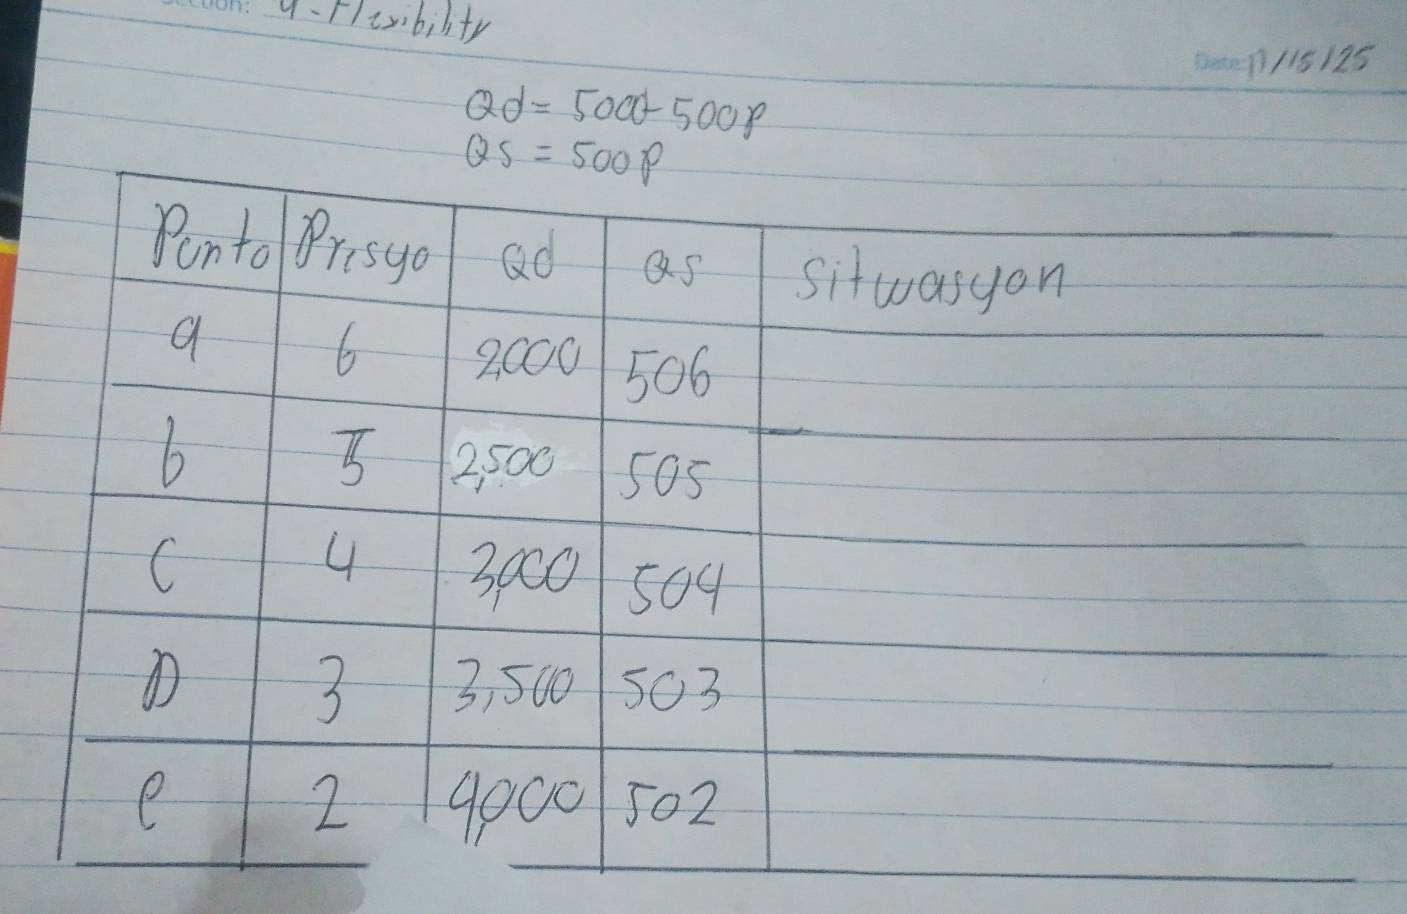 9-Flexibility
Date: 11/15/25
Qd = 5000-500P
QS = 500P
Punto Prisyo Qd Qs Sitwasyon
a 6 2,000 506
b 5 2,500 505
C 4 3,000 504
D 3 3,500 503
e 2 4,000 502